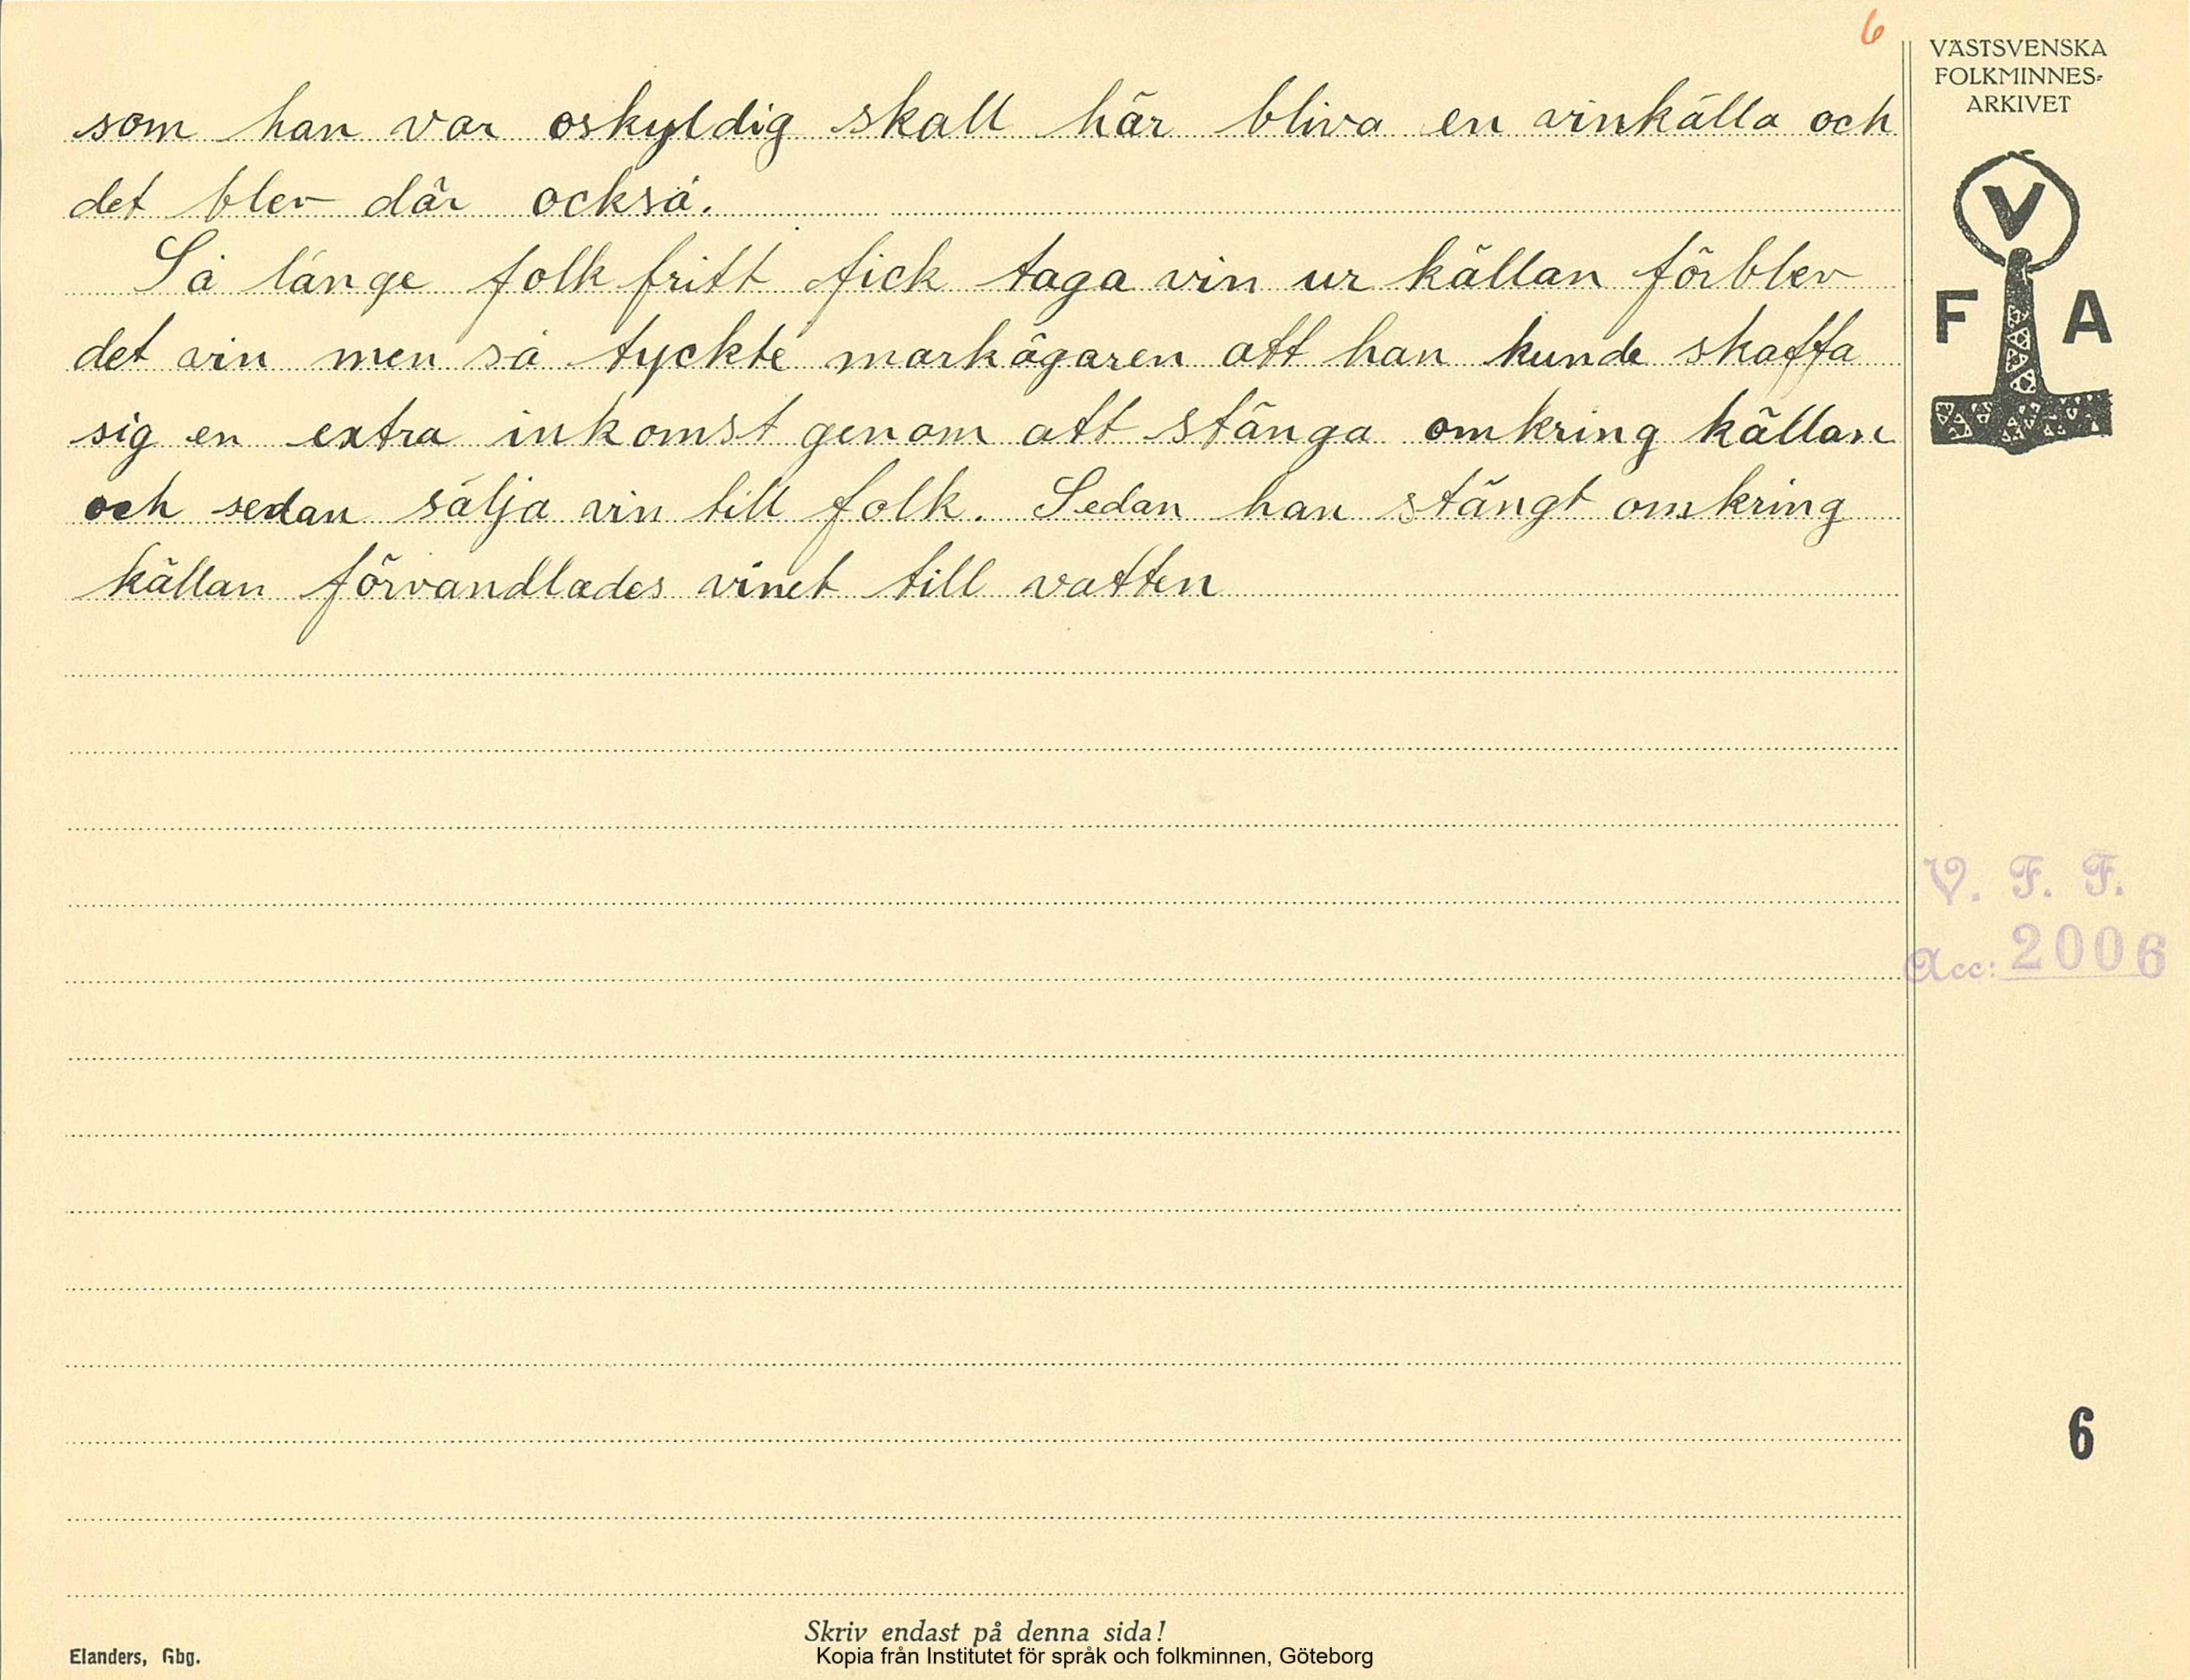 6
VÄSTSVENSKA
FOLKMINNES-
ARKIVET
V
F A
som han var oskyldig skall här bliva en vinkälla och
det blev där också.
Så länge folk fritt fick taga vin ur källan förblev
det vin men så tyckte markägaren att han kunde skaffa
sig en extra inkomst genom att stänga omkring källan
och sedan sälja vin till folk. Sedan han stängt omkring
källan förvandlades vinet till vatten
V. F. F.
Acc: 2006
6
Skriv endast på denna sida!
Elanders, Gbg.
Kopia från Institutet för språk och folkminnen, Göteborg